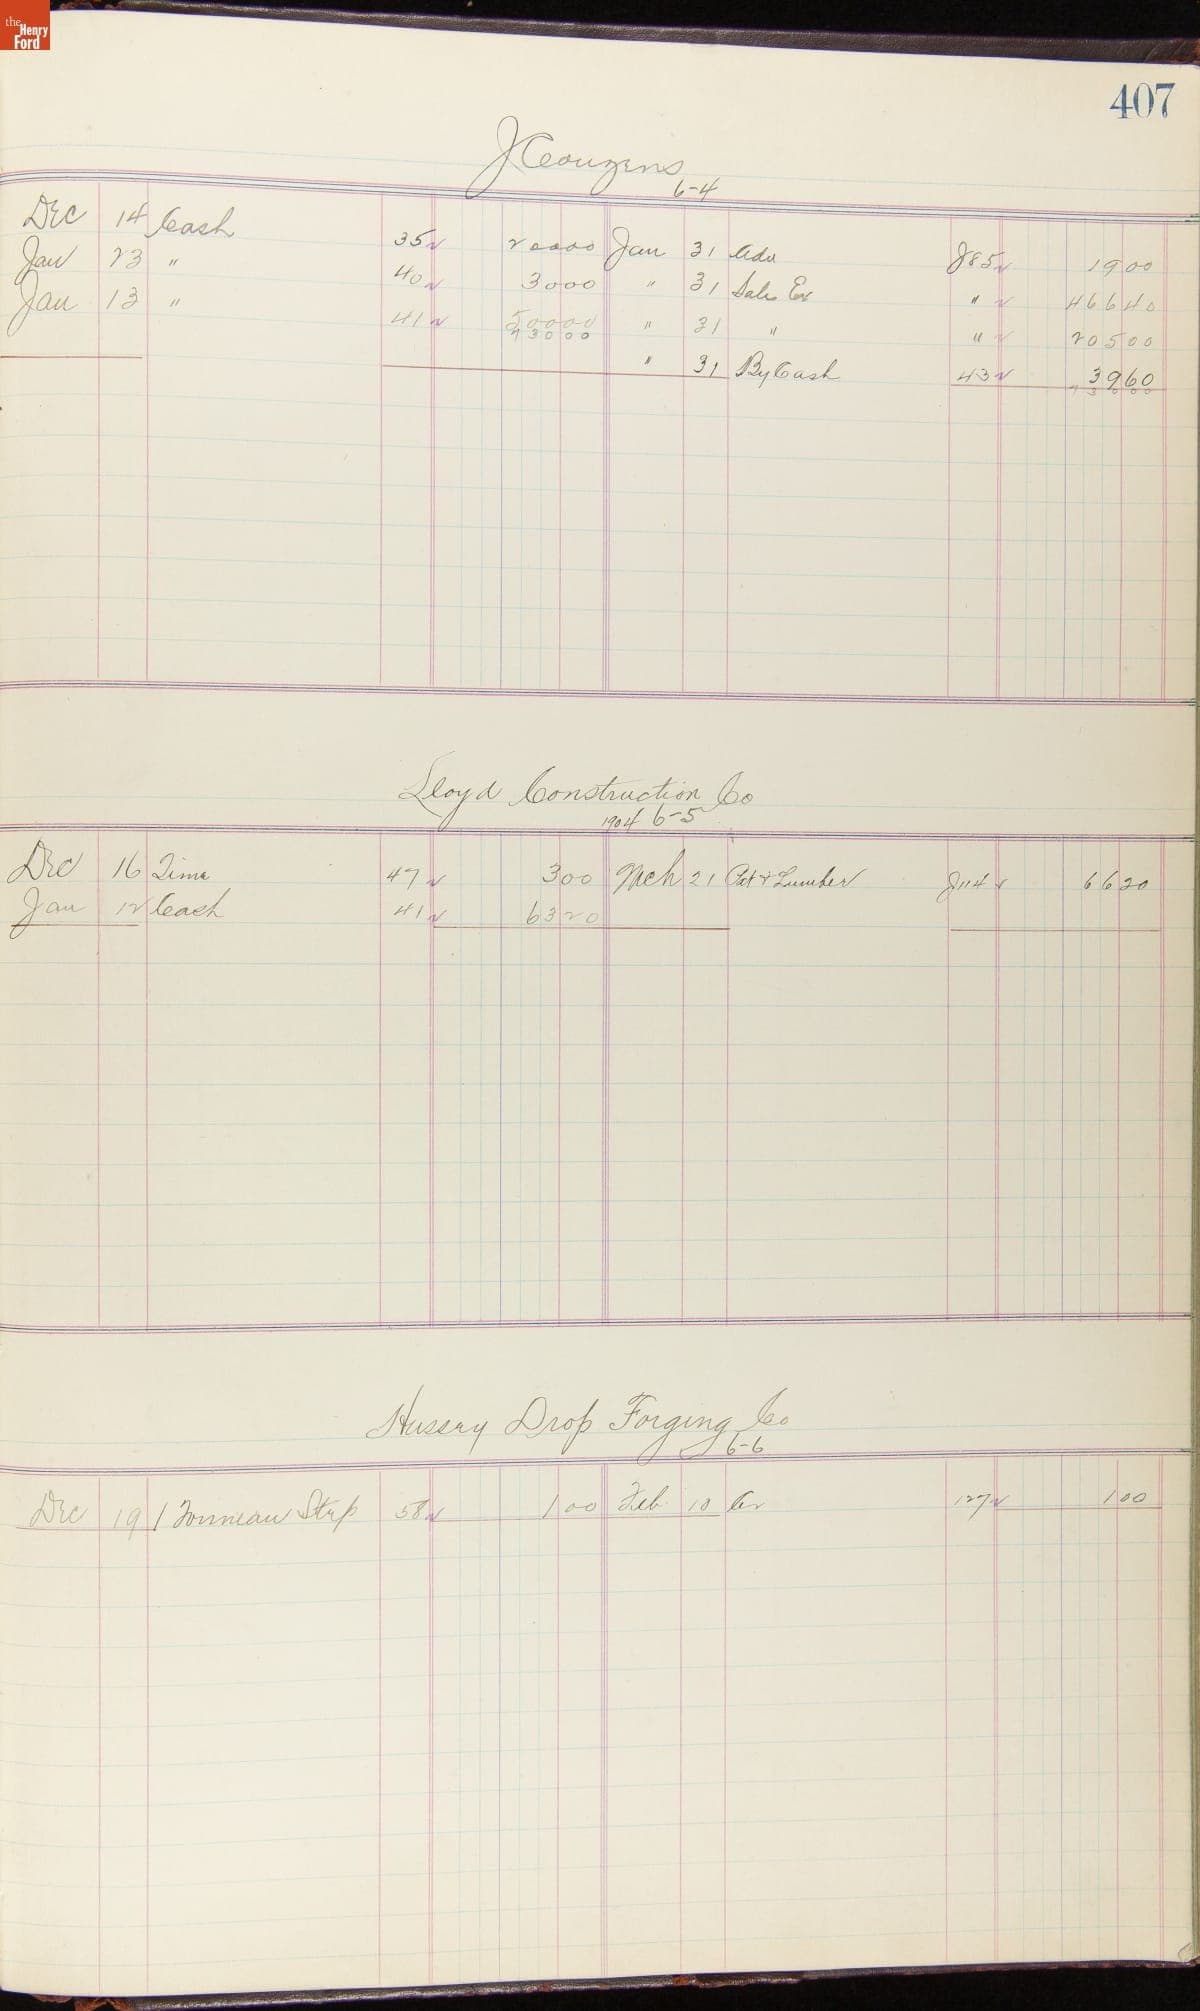 the
Henry
Ford
407
J Couzens
6-4
Dec 14 Cash 35 20000 Jan 31 Adv J85 1900
Jan 23 " 40 3000 " 31 Sales Ex " 46640
Jan 13 " 41 50000 " 31 " " 20500
73000
" 31 By Cash 43 3960
73000
Lloyd Construction Co
1904 6-5
Dec 16 Time 47 300 Mch 21 Pat & Lumber J114 6620
Jan 12 Cash 41 6320
Hussey Drop Forging Co
6-6
Dec 19 1 Tonneau Step 58 100 Feb 10 Cr 127 100